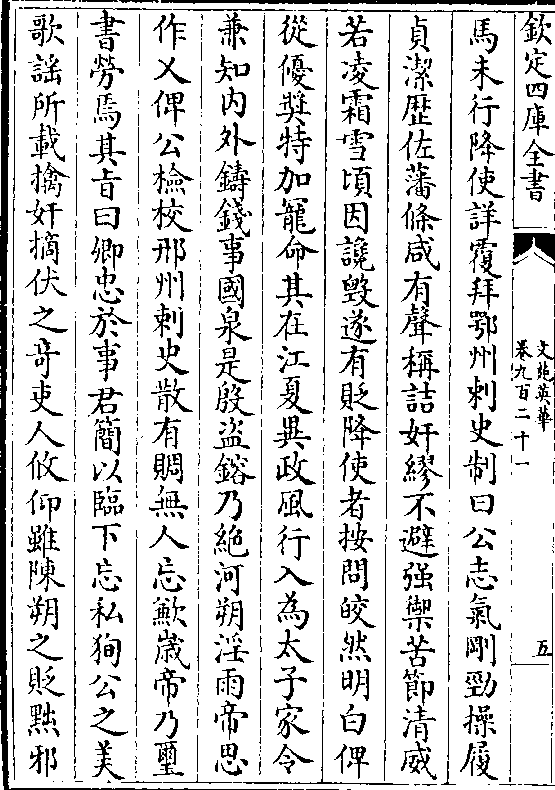 欽定四庫全書
文苑英華
卷九百二十一
五
馬未行降使詳覆拜鄂州刺史制曰公志氣剛勁操履
貞潔歴佐藩條咸有聲稱詰奸繆不避强禦苦節清威
若凌霜雪頃因讒毁遂有貶降使者按問皎然明白俾
從優奨特加寵命其在江夏異政風行入為太子家令
兼知内外鑄錢事國泉是殷盗鎔乃絶河朔淫雨帝思
作乂俾公檢校邢州刺史散有賙無人忘歉嵗帝乃璽
書勞焉其旨曰卿忠於事君簡以臨下忘私狥公之美
歌謡所載擒奸摘伏之竒吏人攸仰雖陳朔之貶黜邪